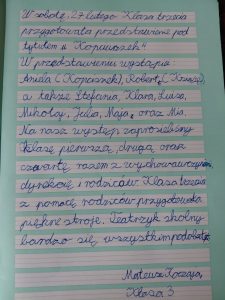 W sobotę 27 lutego Klasa trzecia
przygotowała przedstawienie pod
tytułem „Kopciuszek".
W przedstawieniu wystąpili
Aniela (Kopciuszek), Robert (Książę),
a także Stefania, Klara, Luiza,
Mikołaj, Julia, Maja, oraz Mia.
Na nasz występ zaprosiliśmy
klasę pierwszą, drugą oraz
czwartą razem z wychowawczyniami,
dyrekcję i rodziców. Klasa trzecia
z pomocą rodziców przygotowała
piękne stroje. Teatrzyk szkolny
bardzo się wszystkim podobał.
Mateusz
Klasa 3